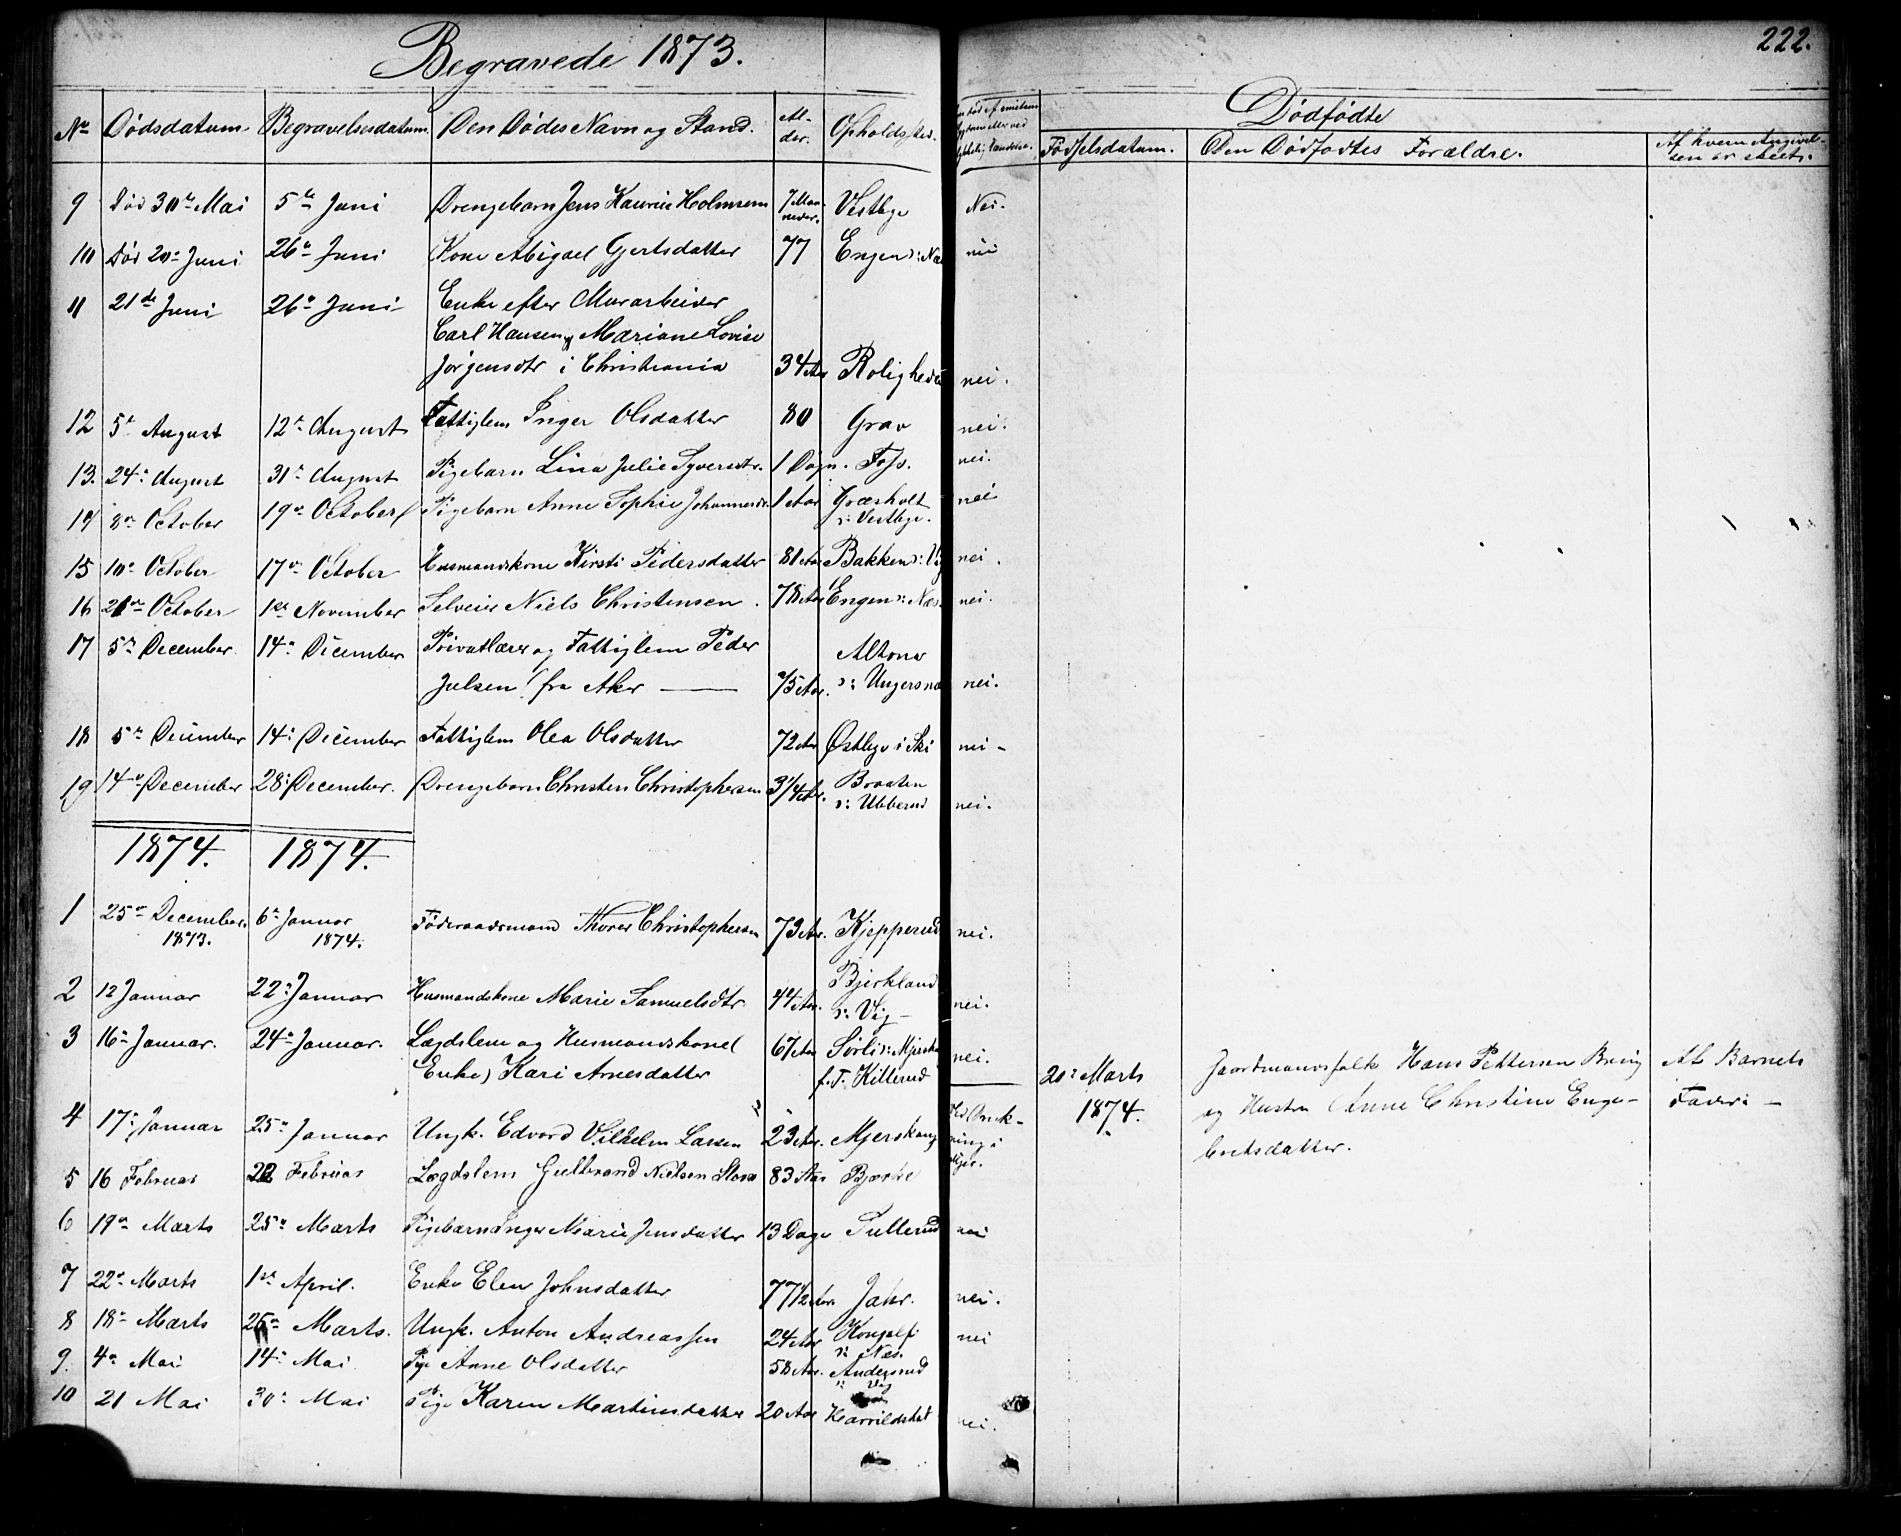 Begravede 1873.
222.
No Dødsdatum. Begravelsesdatum. Den Dødes Navn og Stand. Al-der. Opholdssted.
Dødfødte
Fødselsdatum. Den Dødfødtes Forældre. Af hvem Angivel-sen er skeet.
9 Død 30te Mai 5te Juni Drengebarn Jens Laurits Holmsen 7 Maaneder. Vestbye Nei.
10 Død 20de Juni 26de Juni Kone Abigael Gjertsdatter 77 Engen nei
11 21de Juni 26de Juni Enke efter Murarbeider
Carl Hansen, Mariane Lovise
Jørgensdtr i Christiania 34 Aar Roligheden nei.
12 5te August 12te August Fattiglem Inger Olsdatter 80 Grav nei.
13. 24de August 31te August Pigebarn Lina Julie Syversdtr. 1 Døgn. Foss. nei.
14 8de October 19de October Pigebarn Anne Sophie Johannesdr. 1 Aar Græsholt nei
v: Vestbye.
15 10de October 17de October Husmandskone Kirsti Pedersdatter 81 Aar Bakken nei.
16 21de October 1ste November Selveier Niels Christensen. 78 Aar Engen v: Næs. nei.
17 5te December 14de December Privatlærer og Fattiglem Peder Altona
Julsen (fra Aker — 75 Aar. v: Ungersnæs nei.
18 5te December 14de December Fattiglem Olea Olsdatter 72 Aar Østbye i Ski nei -
19 14de December 28de December. Drengebarn Christen Christophersen 3/4 Aar. Braaten
v: Ubberud nei.
1874. 1874.
1 25de December 6te Januar Føderaadsmand Thorer Christophersen 73 Aar. Kjepperud nei.
1873. 1874.
2 12 Januar 22de Januar Husmandskone Marie Samuelsdtr. 44 Aar. Bjerkland
v: Vig - nei.
3 16de Januar. 24de Januar. Lægdslem og Husmandskone( 67 Aar Sørli nei.
Enke) Kari Arnesdatter f. T. Killerud
20de Marts Gaardmandsfolk Hans Pettersen Af Barnets
1874. og Hustru Anne Christine Enge- Fader: -
bretsdatter.
4 17de Januar 25de Januar Ungk. Edvard Vilhelm Larsen 23 Aar. Mjerskaug
5 16 Februar 22 Februar Lægdslem Gulbrand Nielsen 83 Aar Bjærke
6 19de Marts 25de Marts Pigebarn Inger Marie Jensdatter 13 Dage Tullerud nei
7 22de Marts 1ste April. Enke Elen Johnsdatter 77 1/2 Aar Jahr. nei.
8 18de Marts 25de Marts. Ungk. Anton Andreassen 24 Aar nei
v: Næs.
9. 4de Mai 14de Mai Pige Anne Olsdatter 58 Aar. Andersrud
10 21 Mai 30te Mai Pige Karen Martinsdatter 20 Aar nei.